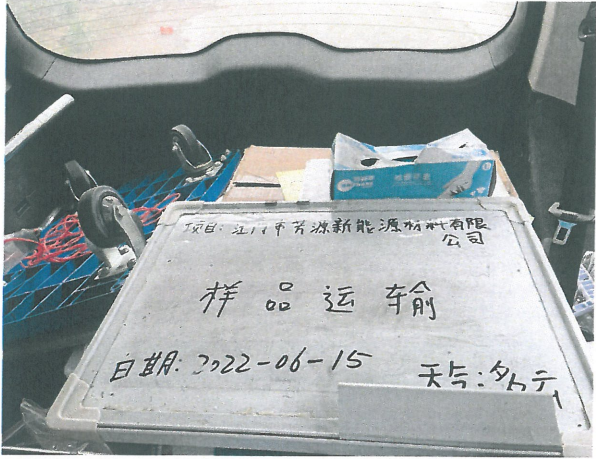 项目: 江门市芳源新能源材料有限
公司
样品运输
日期: 2022-06-15
天气: 多云